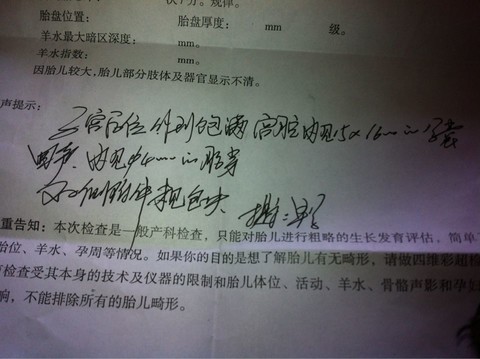 次/分。规律。
胎盘位置: 胎盘厚度: mm 级。
羊水最大暗区深度: mm。
羊水指数: mm。
因胎儿较大,胎儿部分肢体及器官显示不清。
声提示:
子宫后位 外形饱满 宫腔内见15×16mm的孕囊
囊内见 4mm的胚芽
双侧附件未见包块
重告知:本次检查是一般产科检查,只能对胎儿进行粗略的生长发育评估,简单了
胎位、羊水、孕周等情况。如果你的目的是想了解胎儿有无畸形,请做四维彩超检
检查受其本身的技术及仪器的限制和胎儿体位、活动、羊水、骨骼声影和孕妇
响,不能排除所有的胎儿畸形。